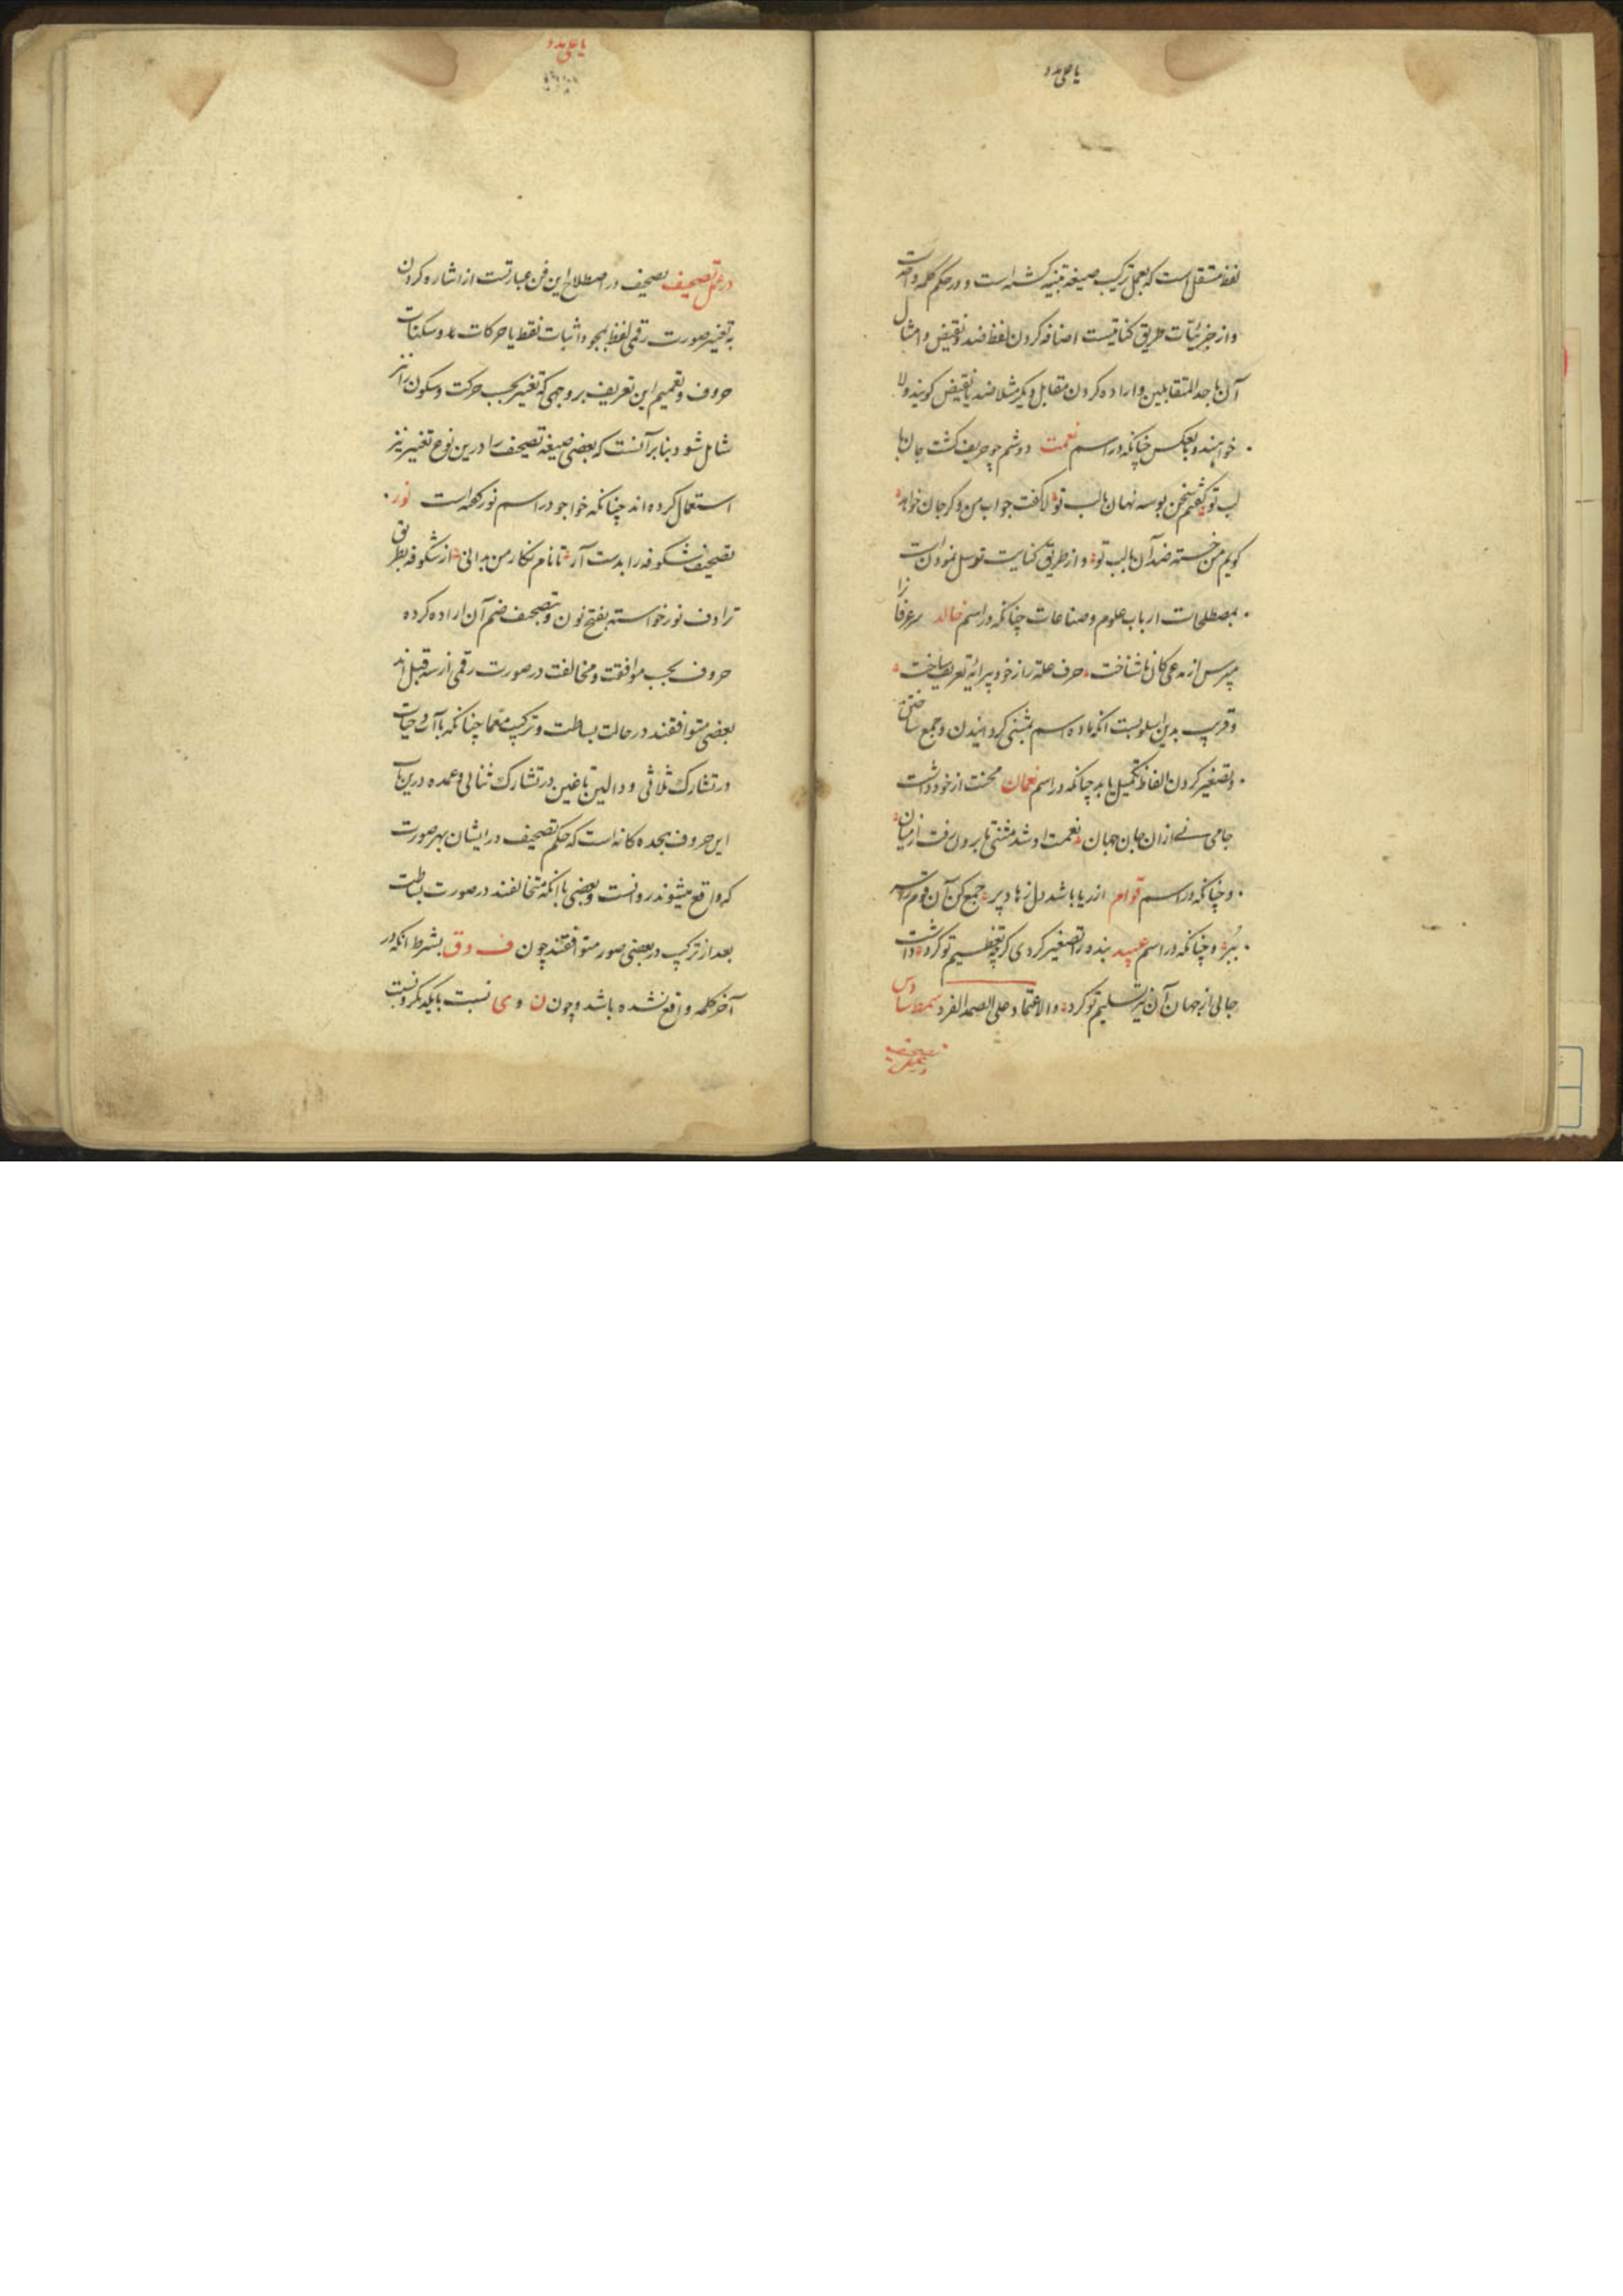 یا علی مدد
لفظ مستقل است که بعمل ترکیب صیغه تثنیه کشته است و در حکم کلمه واحدست
و از جزئیات طریق کنایتست اضافه کردن لفظ ضد و نقیض و امثال
آن باحد المتقابلین و اراده کردن مقابل دیکر مثلا ضد یا نقیض کویند و لا
خواهند و بعکس چنانکه در اسم نعمت دوشم چو حریف کشت جان با
لب تو کفتم سخن بوسه نهان با لب تو لا کفت جواب من و کر جان خواهد
کویم من خسته ضد آن با لب تو و از طریق کنایت توسل نمودن است
بمصطلحات ارباب علوم و صناعات چنانکه در اسم خالد سر عرفا را
مپرس از مدعی کان نشناخت حرف علة را از خود پیرایه تعریف ساخت
و قریب بدین اسلوبست انکه ماده اسم بمثنی کردانیدن و جمع ساختن
و تصغیر کردن الفاظ تکمیل یابد چنانکه در اسم نعمان محنت از خود داشت
جامی نی ازان جان جهان نعمت او شد مثنی تا برون رفت از میان
و چنانکه در اسم قوام از ریا باشد دل زهاد پر جمع کن آن قوم را سر
ببر و چنانکه در اسم عبید بنده را تصغیر کردی کرچه تعظیم تو کرد داشت
جانی از جهان آن نیز تسلیم تو کرد والاعتماد علی الصمد الفرد سمط سادس
یا علی مدد
در عمل تصحیف تصحیف در اصطلاح این فن عبارتست از اشاره کردن
به تغییر صورت رقمی لفظ بمحو و اثبات نقط یا حرکات و سکنات
حروف و تعمیم این تعریف بر وجهی که تغییر بحسب حرکت و سکون را نیز
شامل شود بنابر آنست که بعضی صیغه تصحیف را درین نوع تغییر نیز
استعمال کرده اند چنانکه خواجو در اسم نور کفته است نور
تصحیف شکوفه را بدست آر تا نام نکار من بدانی از شکوفه بطریق
ترادف نور خواسته بفتح نون و بتصحیف ضم آن اراده کرده
حروف بحسب موافقت و مخالفت در صورت رقمی از سه قبیل اند
بعضی متوافقند در حالت بساطت و ترکیب معا چنانکه با آت و حیات
در تشارک ثلاثی و دالین تا غین در تشارک ثنائی و عمده درین باب
این حروف هجده کانه است که حکم تصحیف در ایشان بهر صورت
که واقع میشوند رواست و بعضی با انکه متخالفند در صورت بساطت
بعد از ترکیب در بعضی صور متوافقند چون ف و ق بشرط انکه در
آخر کلمه واقع نشده باشد و چون ن و ی نسبت بایکدیکر و نسبت